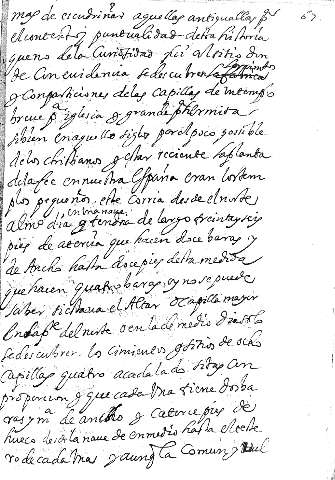 67
mas de escudriñar aquellas antiguallas pª
el intento y puntualidad desta historia
que no de la Curiosidad fui al sitio don
de Con evidencia se descubren
y Compartiçiones de las Capillas de un templo
breve pª iglesia y grande pª hermita
si bien en aquellos siglos por el poco posible
de los christianos y estar reciente la planta
de la fee en nuestra españa eran los tem
plos pequeños. este corria desde el norte
al medio dia en una nave y tendra de largo treinta y seis
pies de a tercia que hacen doce baras, y
de Ancho hasta doce pies desta medida
que hacen quatro baras, y no se puede
saber si estava el Altar o capilla mayor
en la pte del norte o en la del medio dia solo
se descubren los cimientos y sitios de ocho
capillas quatro a cada lado
proporcion y que cada Una tiene dos ba
ras y mª de ancho y catorce pies de
hueco desde la nave de en medio hasta el
ro de cada Una, y aunq la Comun y